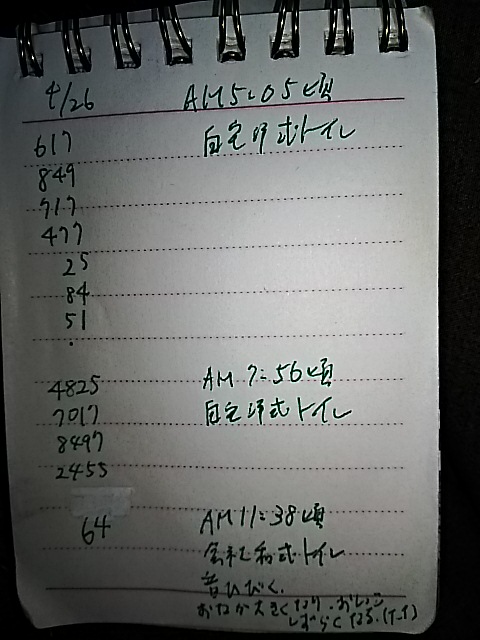 4/26 AM5:05頃
617 自宅洋式トイレ
849
717
477
25
84
51
.
4825 AM7:56頃
7017 自宅洋式トイレ
8497
2455
64 AM11:38頃
会社和式トイレ
音ひびく.
おなか大きくなり.おしっこ
しずらくなる.(T_T)